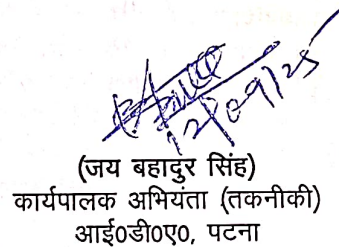 12/09/25
(जय बहादुर सिंह)
कार्यपालक अभियंता (तकनीकी)
आई0डी0ए0, पटना